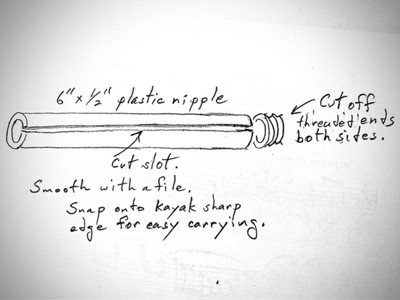 6" x 1/2" plastic nipple
Cut off
threaded ends
both sides.
Cut slot.
Smooth with a file.
Snap onto kayak sharp
edge for easy carrying.